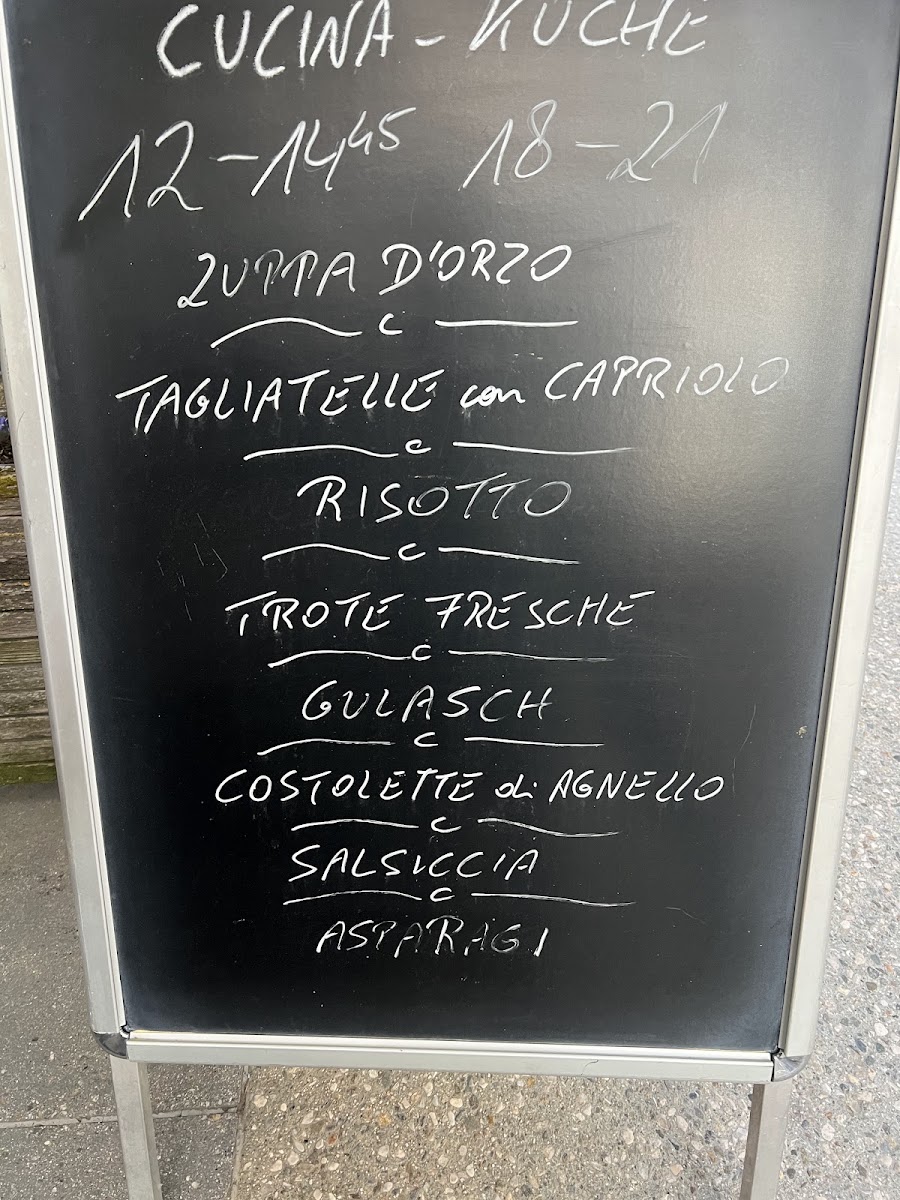 CUCINA - KÜCHE
12-14⁴⁵ 18-21
ZUPPA D'ORZO
TAGLIATELLE con CAPRIOLO
RISOTTO
TROTE FRESCHE
GULASCH
COSTOLETTE di AGNELLO
SALSICCIA
ASPARAGI